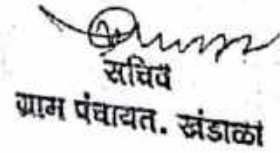 सचिव
ग्राम पंचायत. खंडाळा